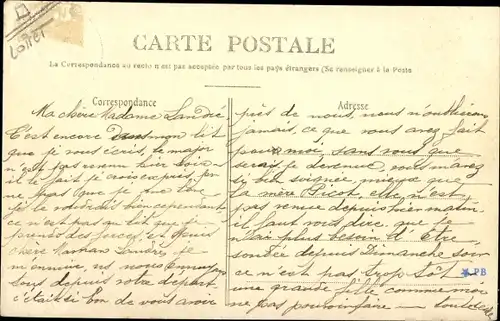 Loiret
CARTE POSTALE
La Correspondance au recto n'est pas acceptée par tous les pays étrangers (Se renseigner à la Poste
Correspondance
Adresse
Ma chère Madame Landré.
C'est encore dans mon lit
que je vous écris, le major
n'est pas venu hier soir
il le fait je crois exprès, je
ne
je le voudrais bien cependant
ce n'est pas au lit que je
prends des forces, et puis
chère Maman Landré, je
m'ennuie, us nous ennuyons
tous depuis votre départ
c'était si bon de vous avoir
près de nous, nous n'oublierons
jamais, ce que vous avez fait
pour moi, sans vous que
serais je devenue vous m'avez
si bien soignée, mieux que
la mère Picot, elle n'est
pas venue depuis hier matin
il faut vous dire que je
n'ai plus besoin d'être
sondée depuis Dimanche soir
ce n'est pas trop tôt
PB
une grande fille comme moi
ne pas pouvoir faire toute